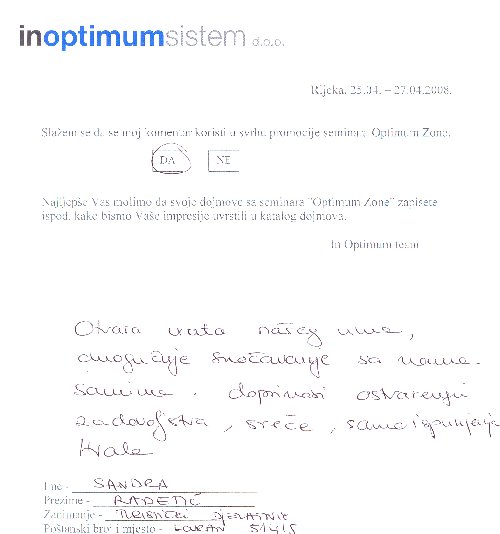 inoptimumsistem d.o.o.
Rijeka, 25.04. – 27.04.2008.
Slažem se da se moj komentar koristi u svrhu promocije seminara Optimum Zone.
DA NE
Najljepše Vas molimo da svoje dojmove sa seminara "Optimum Zone" zapišete
ispod, kako bismo Vaše impresije uvrstili u katalog dojmova.
In Optimum team
Otvara vrata našeg uma,
omogućuje suočavanje sa nama
samima, doprinosi ostvarenju
zadovoljstva, sreće, samoispunjenja
Hvala
Ime - SANDRA
Prezime - RADETIĆ
Zanimanje - TURISTIČKI DJELATNIK
Poštanski broj i mjesto - LOVRAN 51415